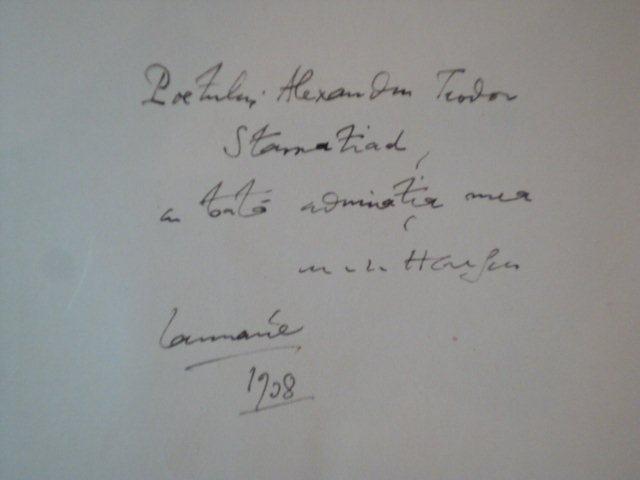 Poetului Alexandru Teodor
Stamatiad,
cu toată admirația mea
Ianuarie
1938